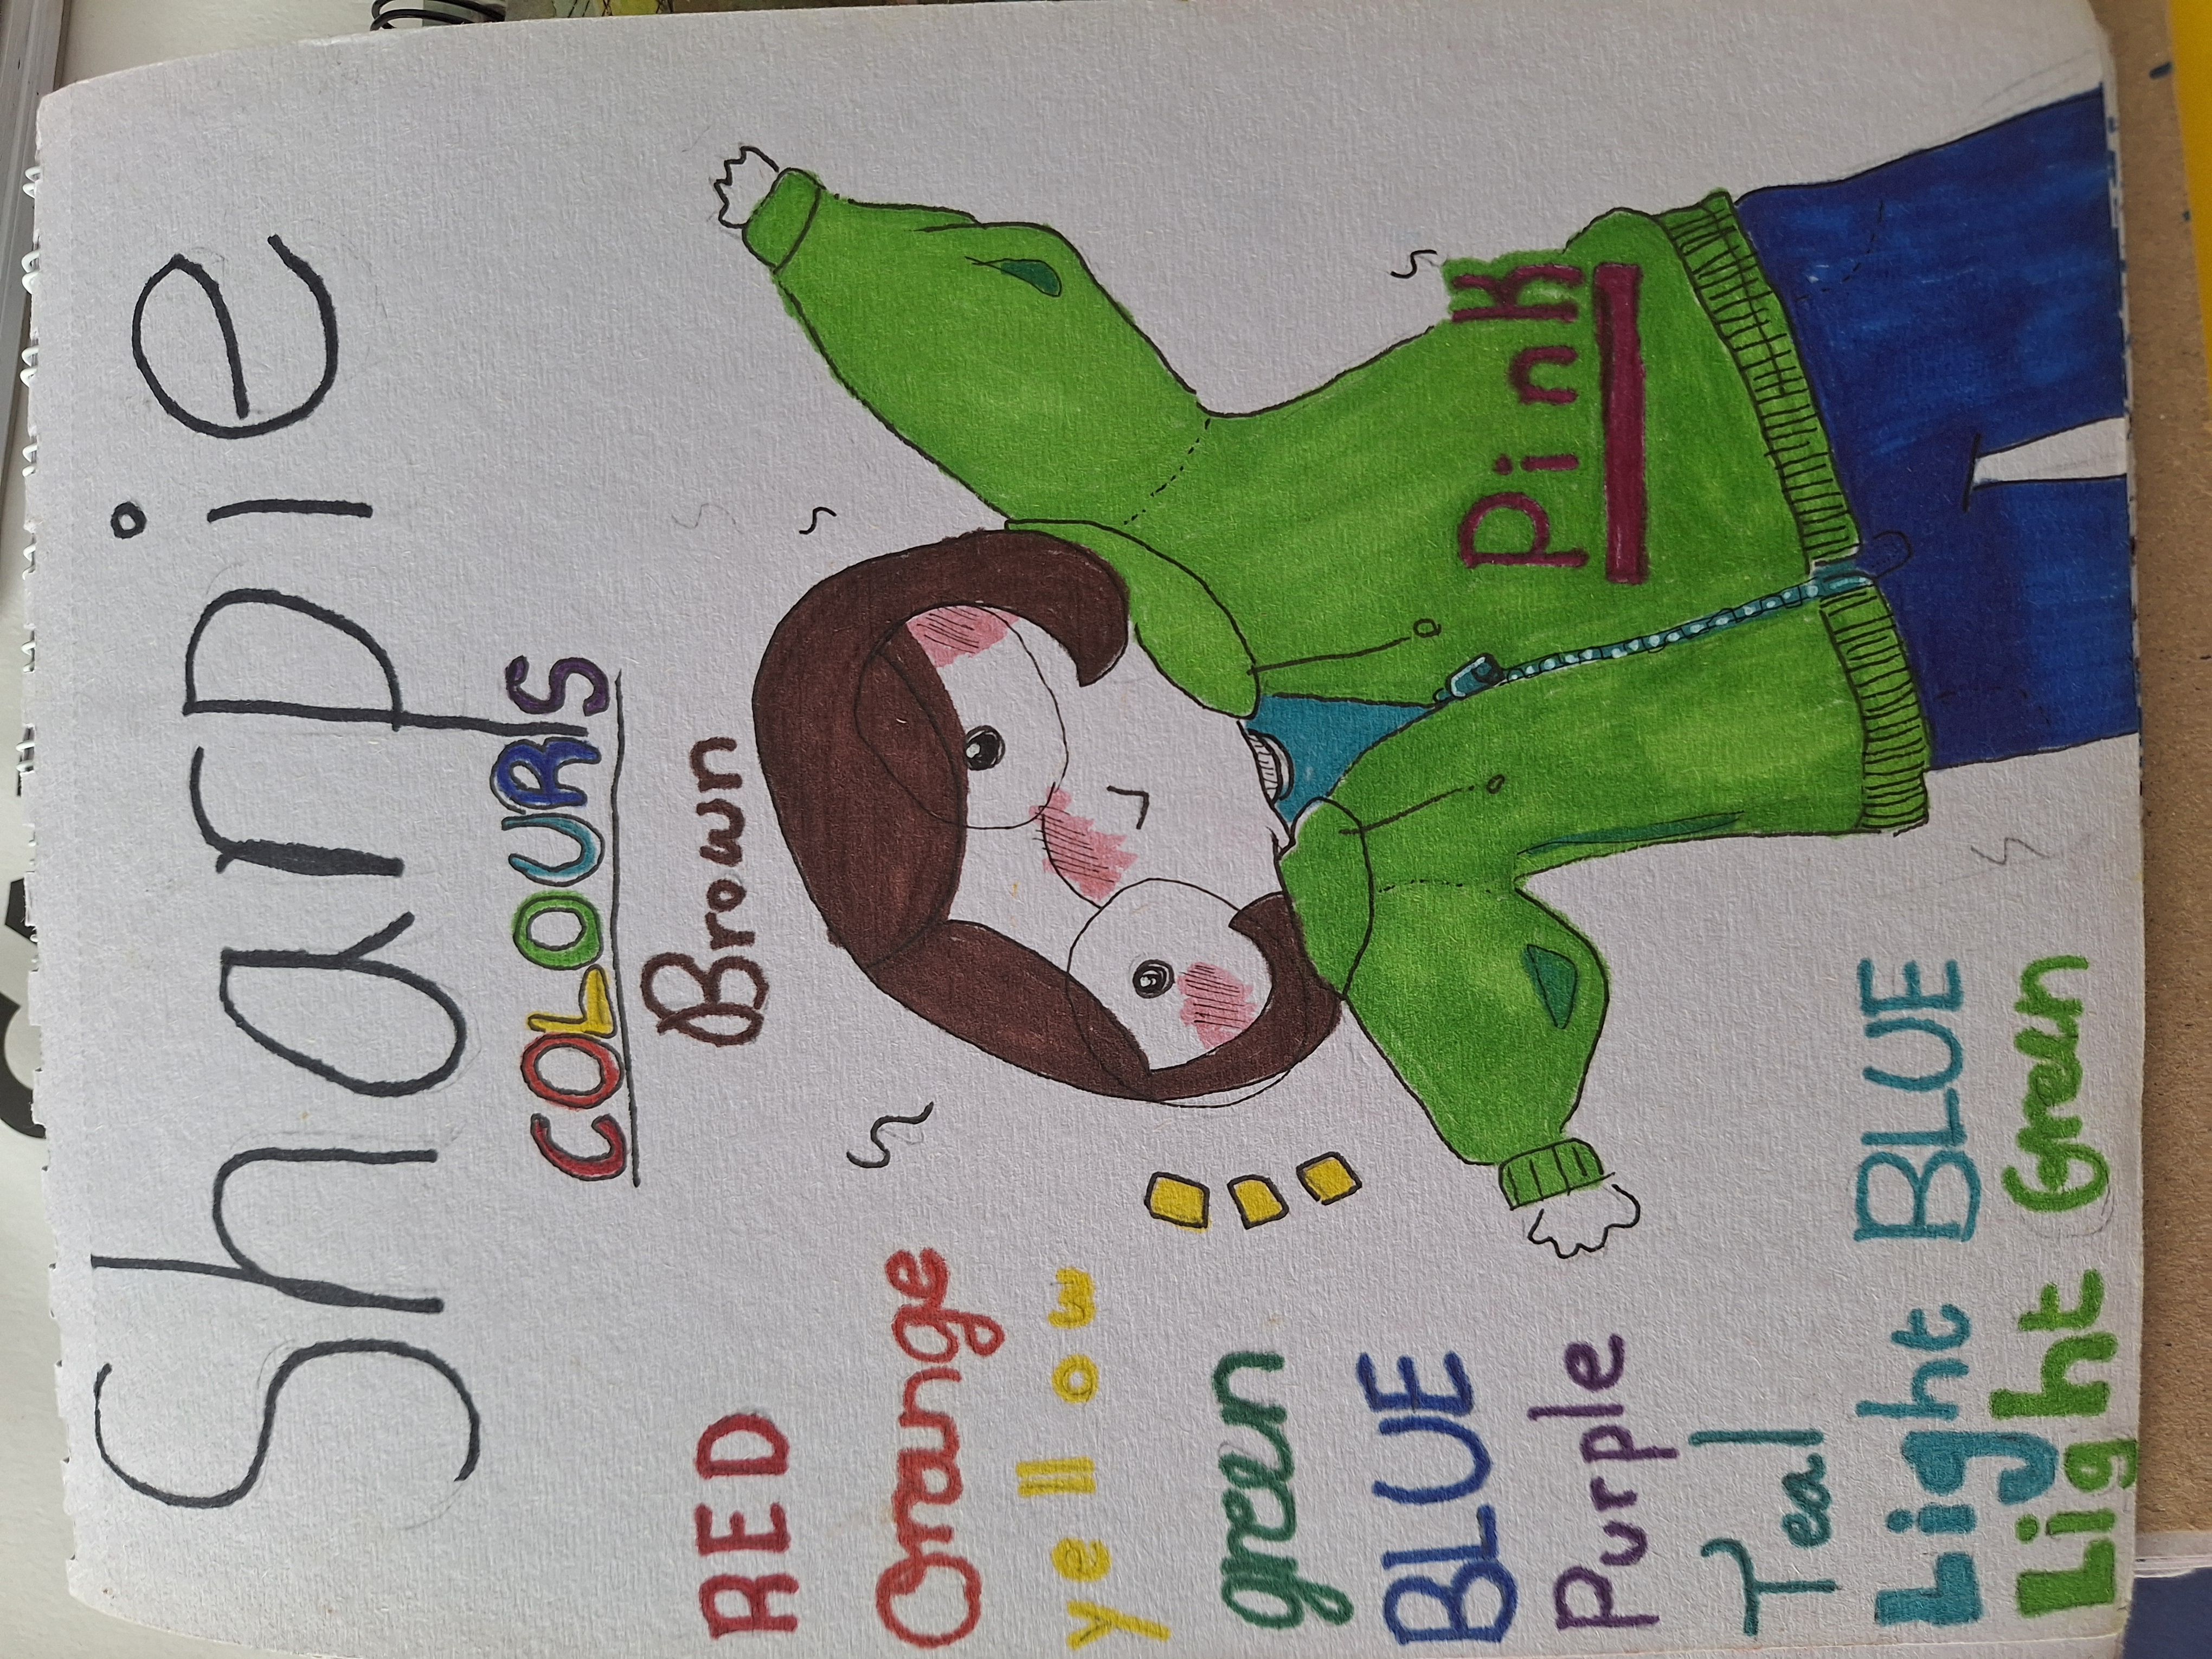 Sharpie
COLOURS
Brown
RED
Orange
yellow
green
BLUE
Purple
Teal
Light BLUE
Light Green
Pink